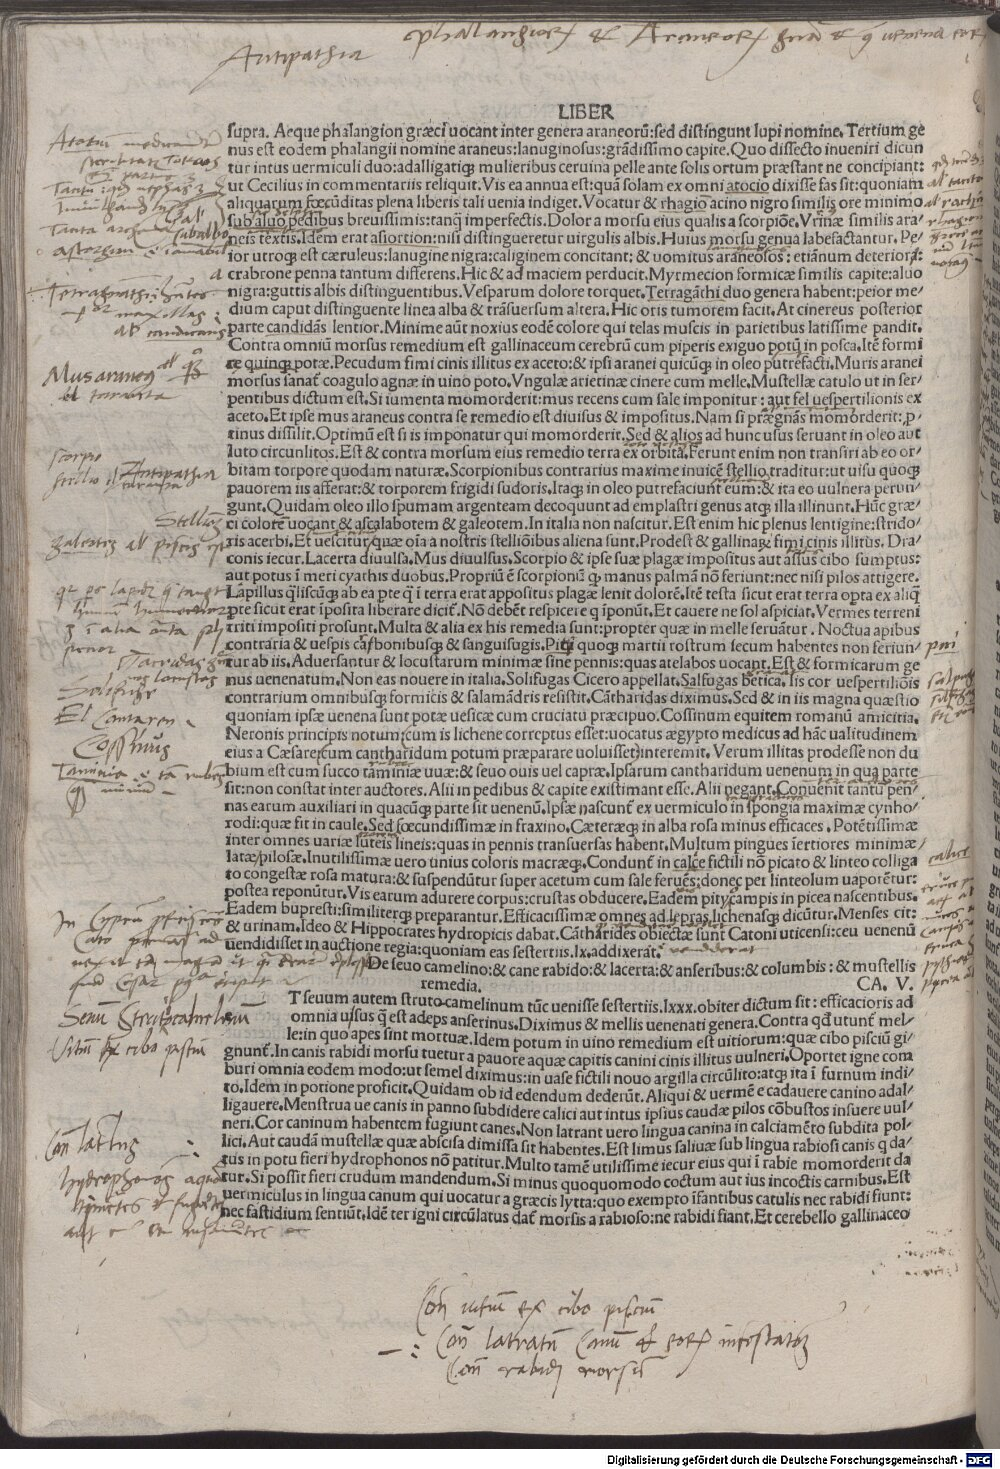 Antipathia
LIBER
supra. Aeque phalangion græci uocant inter genera araneorū: sed distingunt lupi nomine. Tertium ge
nus est eodem phalangii nomine araneus: lanuginosus: grādissimo capite. Quo dissecto inueniri dicun
tur intus uermiculi duo: adalligatiq; mulieribus ceruina pelle ante solis ortum præstant ne concipiant:
ut Cecilius in commentariis reliquit. Vis ea annua est: quā solam ex omni atocio dixisse fas sit: quoniam
aliquarum fœcūditas plena liberis tali uenia indiget. Vocatur & rhagio acino nigro similis ore minimo
sub aluo pedibus breuissimis: tanq̄ imperfectis. Dolor a morsu eius qualis a scorpiōe. Vrina similis ara-
neis textis. Idem erat asiortion: nisi distingueretur uirgulis albis. Huius morsu genua labefactantur. Pe-
ior utroq; est cæruleus: lanugine nigra: caliginem concitant: & uomitus araneosos: etiānum deteriorā:
crabrone penna tantum differens. Hic & ad maciem perducit. Myrmecion formicæ similis capite: aluo
nigra: guttis albis distinguentibus. Vesparum dolore torquet. Terragāthi duo genera habent: peior me-
dium caput distinguente linea alba & trāsuersum altera. Hic oris tumorem facit. At cinereus posterior
parte candidās lentior. Minime aūt noxius eodē colore qui telas muscis in parietibus latissime pandit.
Contra omniū morsus remedium est gallinaceum cerebrū cum piperis exiguo potū in posca. Itē formi
cæ quinque potæ. Pecudum fimi cinis illitus ex aceto: & ipsi aranei quicūq; in oleo putrefacti. Muris aranei
morsus sanat̄ coagulo agnæ in uino poto. Vngulæ arietinæ cinere cum melle. Mustellæ catulo ut in ser-
pentibus dictum est. Si iumenta momorderit: mus recens cum sale imponitur: aut fel uespertilionis ex
aceto. Et ipse mus araneus contra se remedio est diuisus & impositus. Nam si prægnās momorderit: p̄
tinus dissilit. Optimū est si is imponatur qui momorderit. Sed & alios ad hunc usus seruant in oleo aut
luto circunlitos. Est & contra morsum eius remedio terra ex orbita. Ferunt enim non transiri ab eo or-
bitam torpore quodam naturæ. Scorpionibus contrarius maxime inuicē stellio traditur: ut uisu quoq;
pauorem iis afferat: & torporem frigidi sudoris. Itaq; in oleo putrefaciunt eum: & ita eo uulnera perun-
gunt. Quidam oleo illo spumam argenteam decoquunt ad emplastri genus atq; illa illinunt. Hūc græ-
ci colotē uocant & ascalabotem & galeotem. In italia non nascitur. Est enim hic plenus lentigine: strido-
ris acerbi. Et uescitur quæ oīa a nostris stelliōibus aliena sunt. Prodest & gallinaæ fimi cinis illitus. Dra-
conis iecur. Lacerta diuulsa. Mus diuulsus. Scorpio & ipse suæ plagæ impositus aut assus cibo sumptus:
aut potus ī meri cyathis duobus. Propriū ē scorpioniū q; manus palmā nō feriunt: nec nisi pilos attigere.
Lapillus q̄liscūq; ab ea pte q̄ ī terra erat appositus plagæ lenit dolorē. Itē testa sicut erat terra opta ex aliq̄
pte sicut erat īposita liberare dicit̄. Nō debēt respicere q īponūt. Et cauere ne sol aspiciat. Vermes terreni
triti impositi prosunt. Multa & alia ex his remedia sunt: propter quæ in melle seruātur. Noctua apibus
contraria & uespis crabonibusq; & sanguisugis. Pici quoq; martii rostrum secum habentes non feriun-
tur ab iis. Aduersantur & locustarum minimæ sine pennis: quas atelabos uocant. Est & formicarum ge
nus uenenatum. Non eas nouere in italia. Solifugas Cicero appellat. Salfugas betica. Iis cor uespertiliōis
contrarium omnibusq; formicis & salamādris resistit. Cātharidas diximus. Sed & in iis magna quæstio
quoniam ipsæ uenena sunt potæ uesicæ cum cruciatu præcipuo. Cossinum equitem romanū amicitia
Neronis principis notum: cum is lichene correptus esset: uocatus ægypto medicus ad hāc ualitudinem
eius a Cæsare (cum cantharidum potum præparare uoluisset) interemit. Verum illitas prodesse non du
bium est cum succo taminiæ uuæ: & seuo ouis uel capræ. Ipsarum cantharidum uenenum in qua parte
sit: non constat inter auctores. Alii in pedibus & capite existimant esse. Alii negant. Conuenit tantū pen-
nas earum auxiliari in quacūq; parte sit uenenū. Ipsæ nascunt̄ ex uermiculo in spongia maximæ cynho-
rodi: quæ fit in caule. Sed fœcundissimæ in fraxino. Cæteræq; in alba rosa minus efficaces. Potētissimæ
inter omnes uariæ luteis lineis: quas in pennis transuersas habent. Multum pingues īertiores minimæ
latæ pilosæ. Inutilissimæ uero unius coloris macræq;. Condunt̄ in calice fictili nō picato & linteo colliga
to congestæ rosa matura: & suspendūtur super acetum cum sale feruēs: donec per linteolum uaporētur:
postea reponūtur. Vis earum adurere corpus: crustas obducere. Eadem pitycampis in picea nascentibus.
Eadem bupresti: similiterq; preparantur. Efficacissimæ omnes ad lepras lichenasq; dicūtur. Menses cit:
& urinam. Ideo & Hippocrates hydropicis dabat. Cātharides obiectæ sunt Catoni uticensi: ceu uenenū
uendidisset in auctione regia: quoniam eas sestertiis. lx. addixerat.
De seuo camelino: & cane rabido: & lacerta: & anseribus: & columbis: & mustellis
remedia. CA. V.
T seuum autem struto-camelinum tūc uenisse sestertiis. lxxx. obiter dictum sit: efficacioris ad
omnia usus q̄ est adeps anserinus. Diximus & mellis uenenati genera. Contra qđ utunt̄ mel-
le: in quo apes sint mortuæ. Idem potum in uino remedium est uitiorum: quæ cibo pisciū gi-
gnunt̄. In canis rabidi morsu tuetur a pauore aquæ capitis canini cinis illitus uulneri. Oportet igne com
buri omnia eodem modo: ut semel diximus: in uase fictili nouo argilla circūlito: atq; ita ī furnum indi-
to. Idem in potione proficit. Quidam ob id edendum dederūt. Aliqui & uermē e cadauere canino adal-
ligauere. Menstrua ue canis in panno subdidere calici aut intus ipsius caudæ pilos cōbustos insuere uul-
neri. Cor caninum habentem fugiunt canes. Non latrant uero lingua canina in calciamēto subdita pol-
lici. Aut caudā mustellæ quæ abscisa dimissa sit habentes. Est limus saliuæ sub lingua rabiosi canis q da-
tus in potu fieri hydrophonos nō patitur. Multo tamē utilissime iecur eius qui ī rabie momorderit da
tur. Si possit fieri crudum mandendum. Si minus quoquomodo coctum aut ius incoctis carnibus. Est
uermiculus in lingua canum qui uocatur a græcis lytta: quo exempto īfantibus catulis nec rabidi fiunt:
nec fastidium sentiūt. Idē ter igni circūlatus dat̄ morsis a rabioso: ne rabidi fiant. Et cerebello gallinaceo
Musaraneus
scorpio
Antipathia
Solifuge
Cossinus
Con latratus
Con uitium ex cibo piscium
Con latratū Canū & eorꝝ infestatōꝫ
Con rabidi morsū
Digitalisierung gefördert durch die Deutsche Forschungsgemeinschaft - DFG